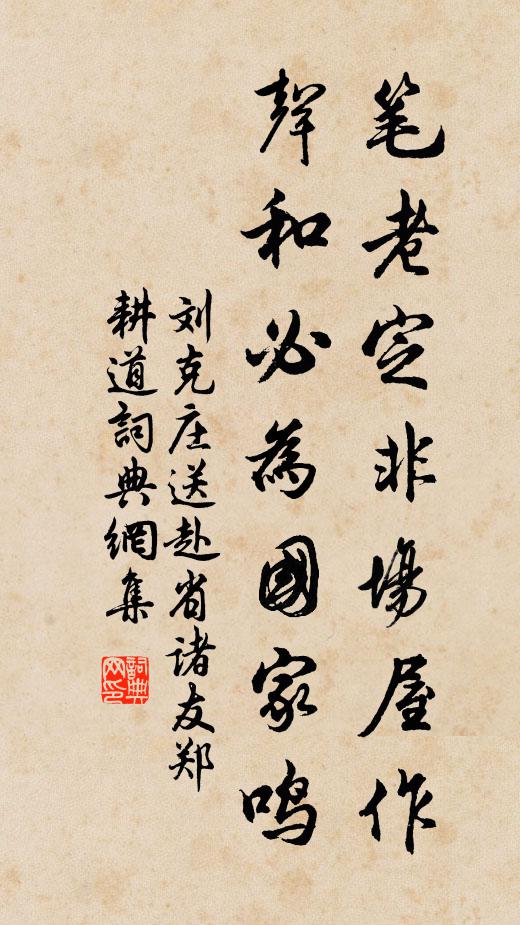 笔老定非場屋作
聲和必為國家鸣
刘克庄送赴省诸友郑
耕道詞典網集
詞典网印